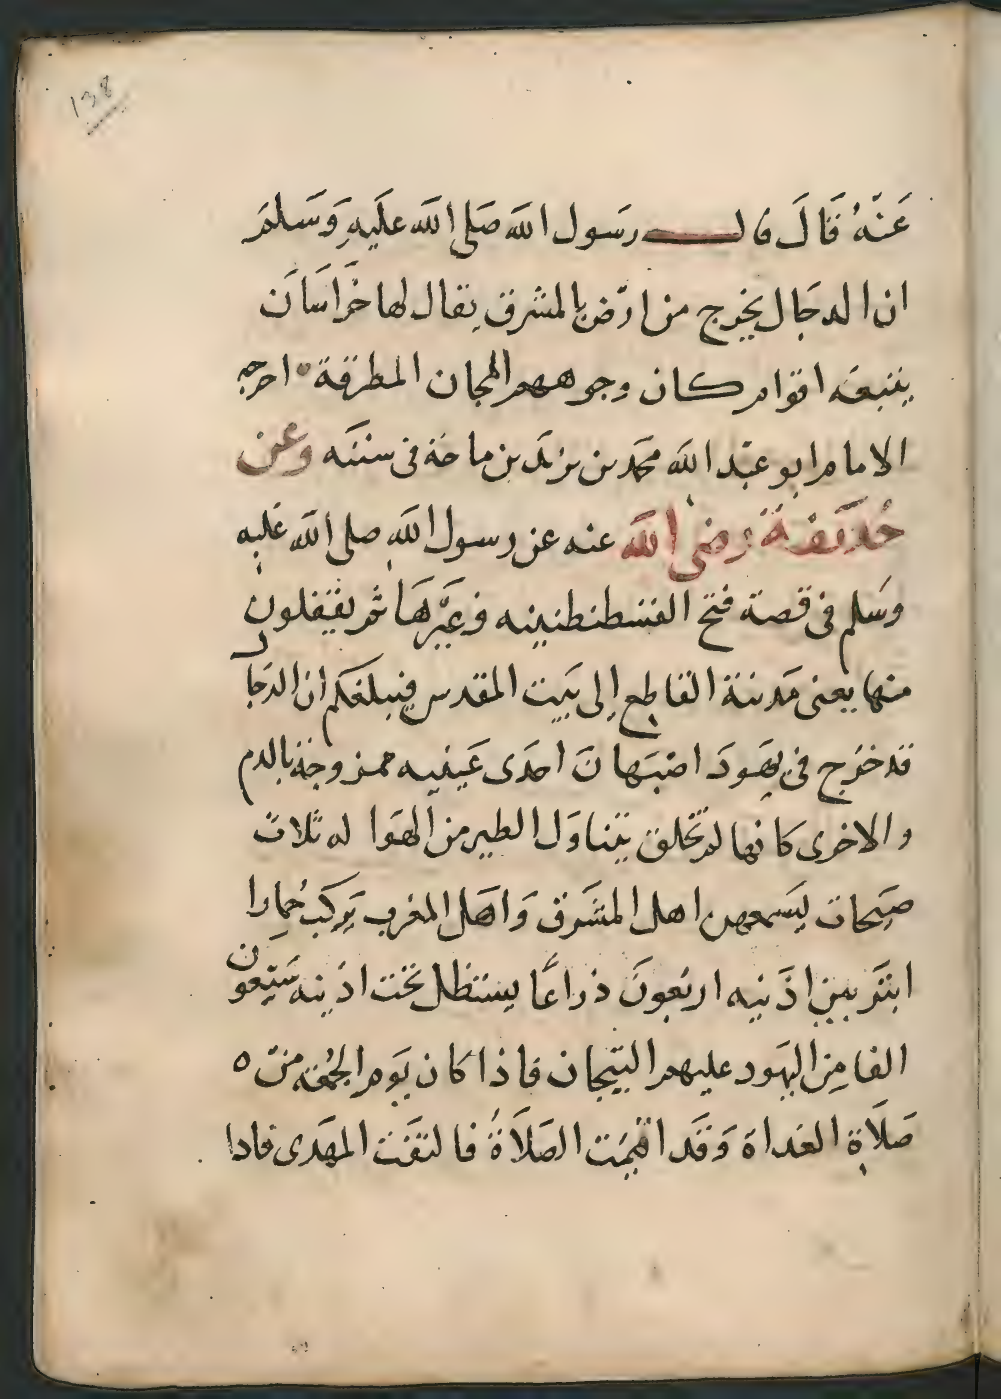 138
عَنْهُ قَالَ قال رسَول الله صَلى الله علَيهِ وَسَلمَ
ان الدجَال يخرج من ارْض بالمشرق يقال لها خَراسَان
يتبعَه اقوام كان وجوههم المجان المطرقة اخرجه
الامام ابو عبْد الله محمَد بن يزيَد بن ماجَة فى سننَه وعَن
حُذَيفَة رضى الله عنه عن رسول الله صلى الله عَليه
وسَلم فى قصة فتح القسطنطينيه وغيَّرهَا ثم يقفلون
منها يعنى مَدينة القاطع اِلى بَيت المقدس فيبلغكم ان الدَجال
قد خرَج فى يهَودَ اصْبَهانَ احدَى عَينيه ممزوجَة بالدم
والاخرى كانها لم تخلق يتناوَل الطير من الهَوا له ثلاث
صيَحات يَسمعهن اهل المشَرق وَاهَل المغرب يَركب حُمارا
ابتَر بين اذَنيه اربَعونَ ذراعًا يستظل تحت اذنيه سَبعون
الفا مِن اليهَود عليهم التيجان فاذا كان يَوم الجُمعَة من ه
صَلَاةِ الغداة وَقَد اقيمَت الصَلَاةُ فالتفَت المهَدى فاذا